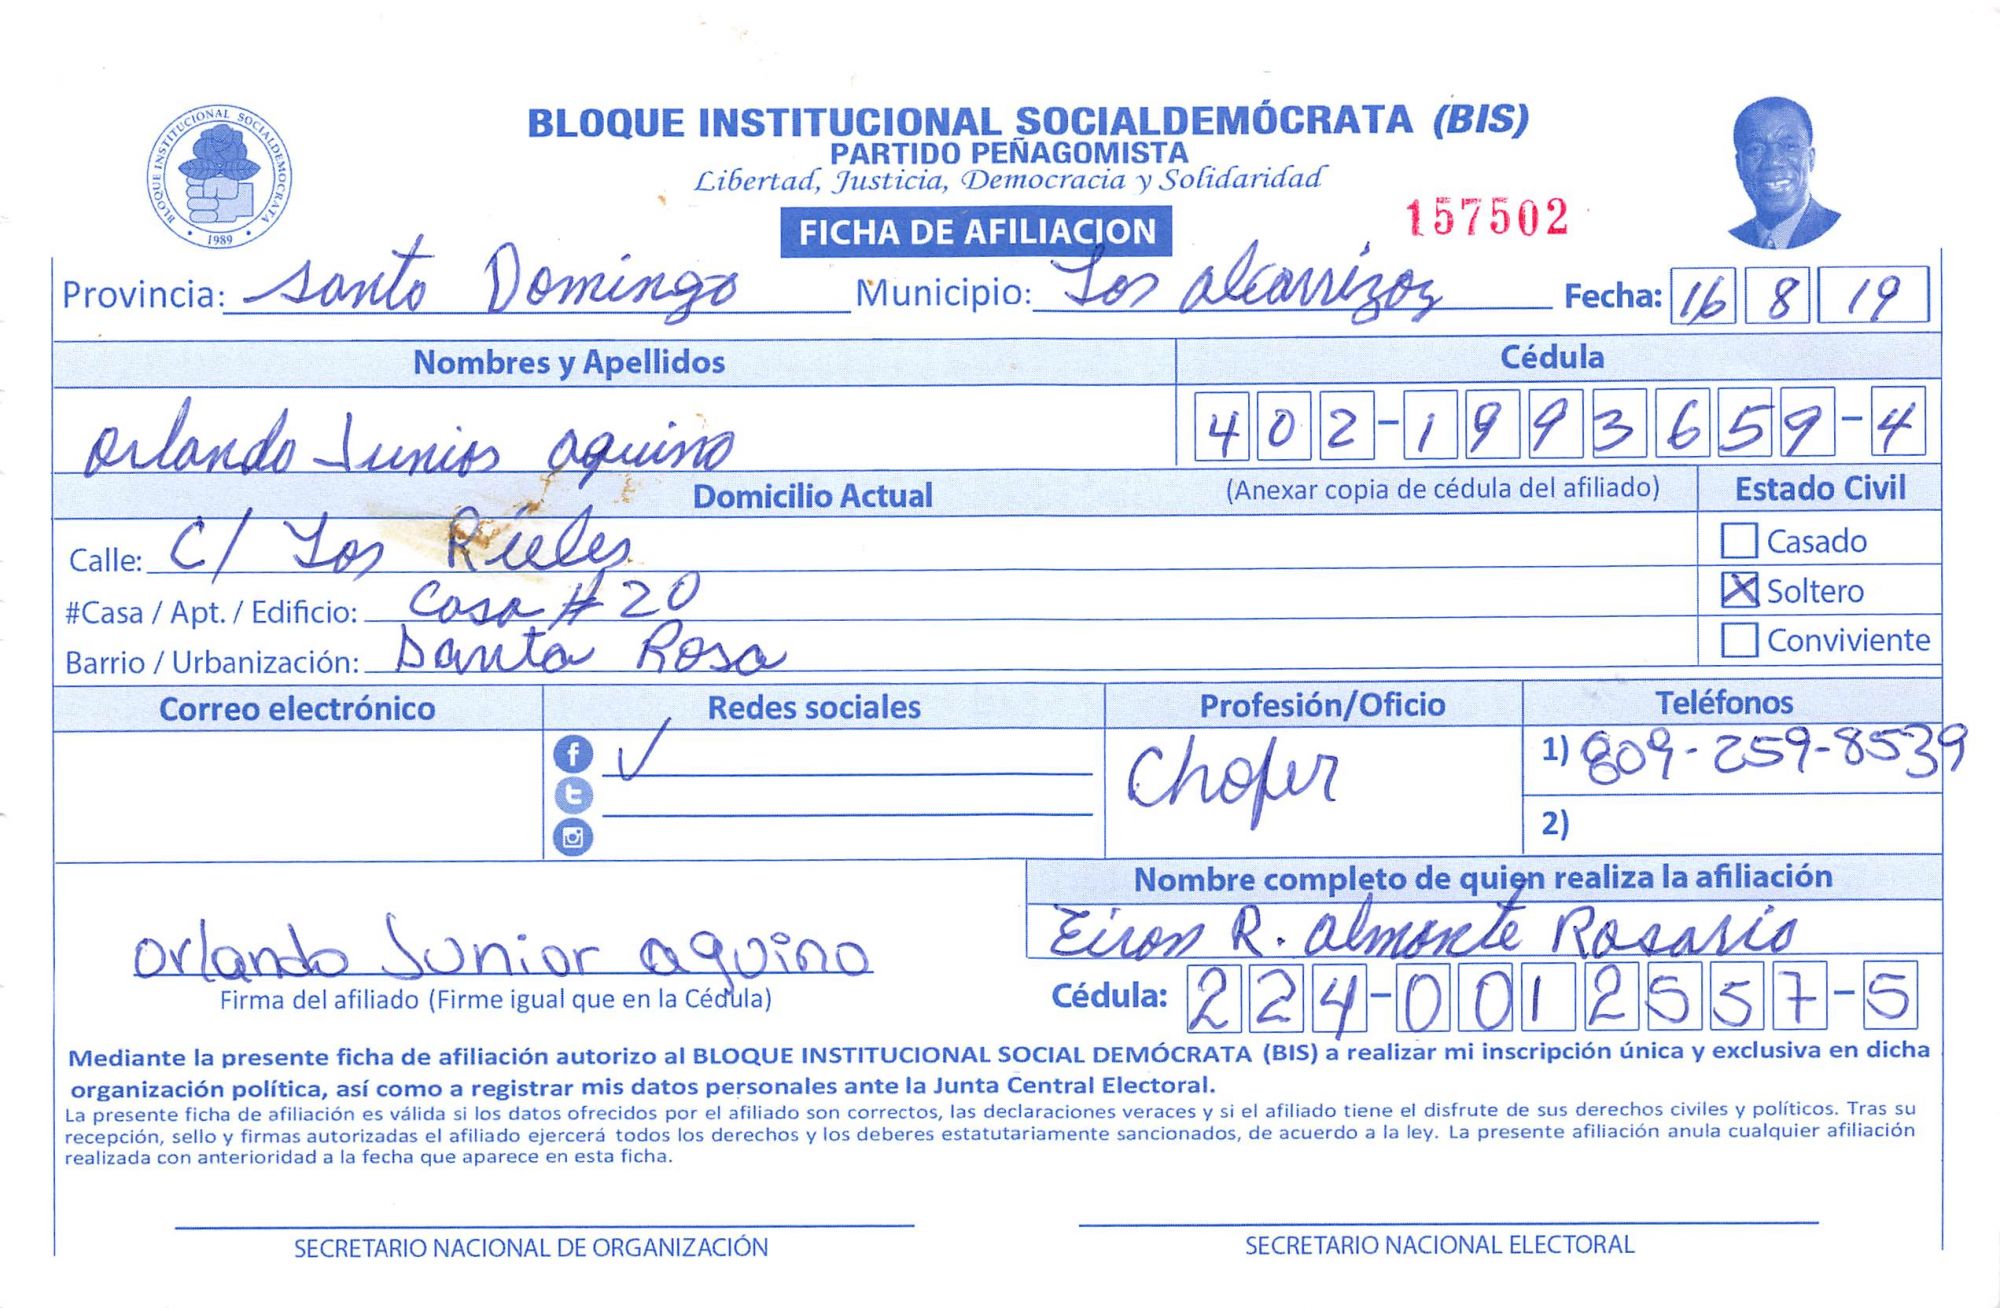 BLOQUE INSTITUCIONAL SOCIALDEMOCRATA
1989
BLOQUE INSTITUCIONAL SOCIALDEMÓCRATA (BIS)
PARTIDO PEÑAGOMISTA
Libertad, Justicia, Democracia y Solidaridad
FICHA DE AFILIACION
157502
Provincia: Santo Domingo Municipio: Los alcarrizos Fecha: 16 8 19
Nombres y Apellidos Cédula
Orlando Junior aquino 402-1993659-4
Domicilio Actual (Anexar copia de cédula del afiliado) Estado Civil
Calle: C/ Los Rieles Casado
#Casa / Apt. / Edificio: Casa # 20 X Soltero
Barrio / Urbanización: Santa Rosa Conviviente
Correo electrónico Redes sociales Profesión/Oficio Teléfonos
f ✓ Chofer 1) 809-259-8539
t
2)
Nombre completo de quien realiza la afiliación
R. almonte Rosario
Orlando Junior aquino
Firma del afiliado (Firme igual que en la Cédula) Cédula: 224-0012557-5
Mediante la presente ficha de afiliación autorizo al BLOQUE INSTITUCIONAL SOCIAL DEMÓCRATA (BIS) a realizar mi inscripción única y exclusiva en dicha
organización política, así como a registrar mis datos personales ante la Junta Central Electoral.
La presente ficha de afiliación es válida si los datos ofrecidos por el afiliado son correctos, las declaraciones veraces y si el afiliado tiene el disfrute de sus derechos civiles y políticos. Tras su
recepción, sello y firmas autorizadas el afiliado ejercerá todos los derechos y los deberes estatutariamente sancionados, de acuerdo a la ley. La presente afiliación anula cualquier afiliación
realizada con anterioridad a la fecha que aparece en esta ficha.
SECRETARIO NACIONAL DE ORGANIZACIÓN SECRETARIO NACIONAL ELECTORAL